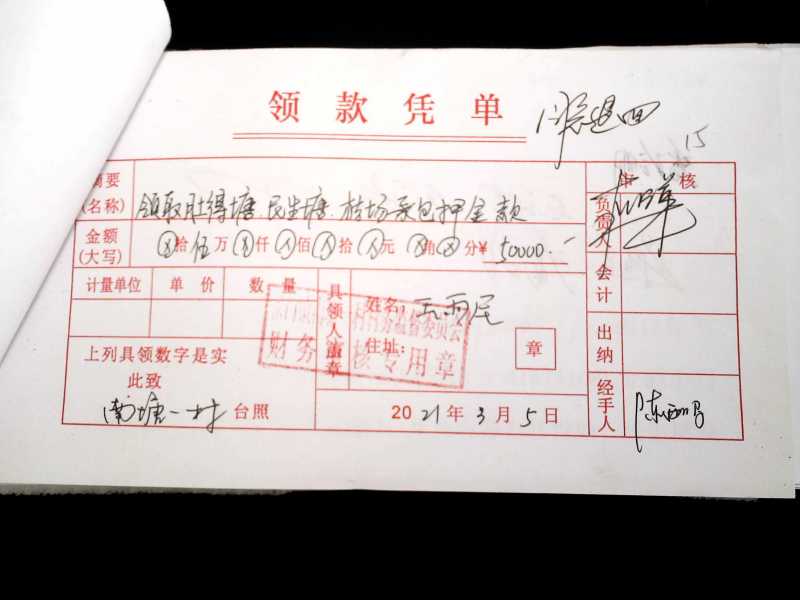 领款凭单
15
摘要
(名称)
领取肚得塘、民生塘、
承包押金款
审核
负责人
金额
(大写)
ⓧ拾伍万ⓧ仟ⓧ佰ⓧ拾ⓧ元ⓧ角ⓧ分¥ 50000.-
会计
计量单位 单价 数量
具领人盖章
姓名:
住址:
章
财务
核专用章
出纳
上列具领数字是实
此致
南塘一村台照
2021年3月5日
经手人
陈